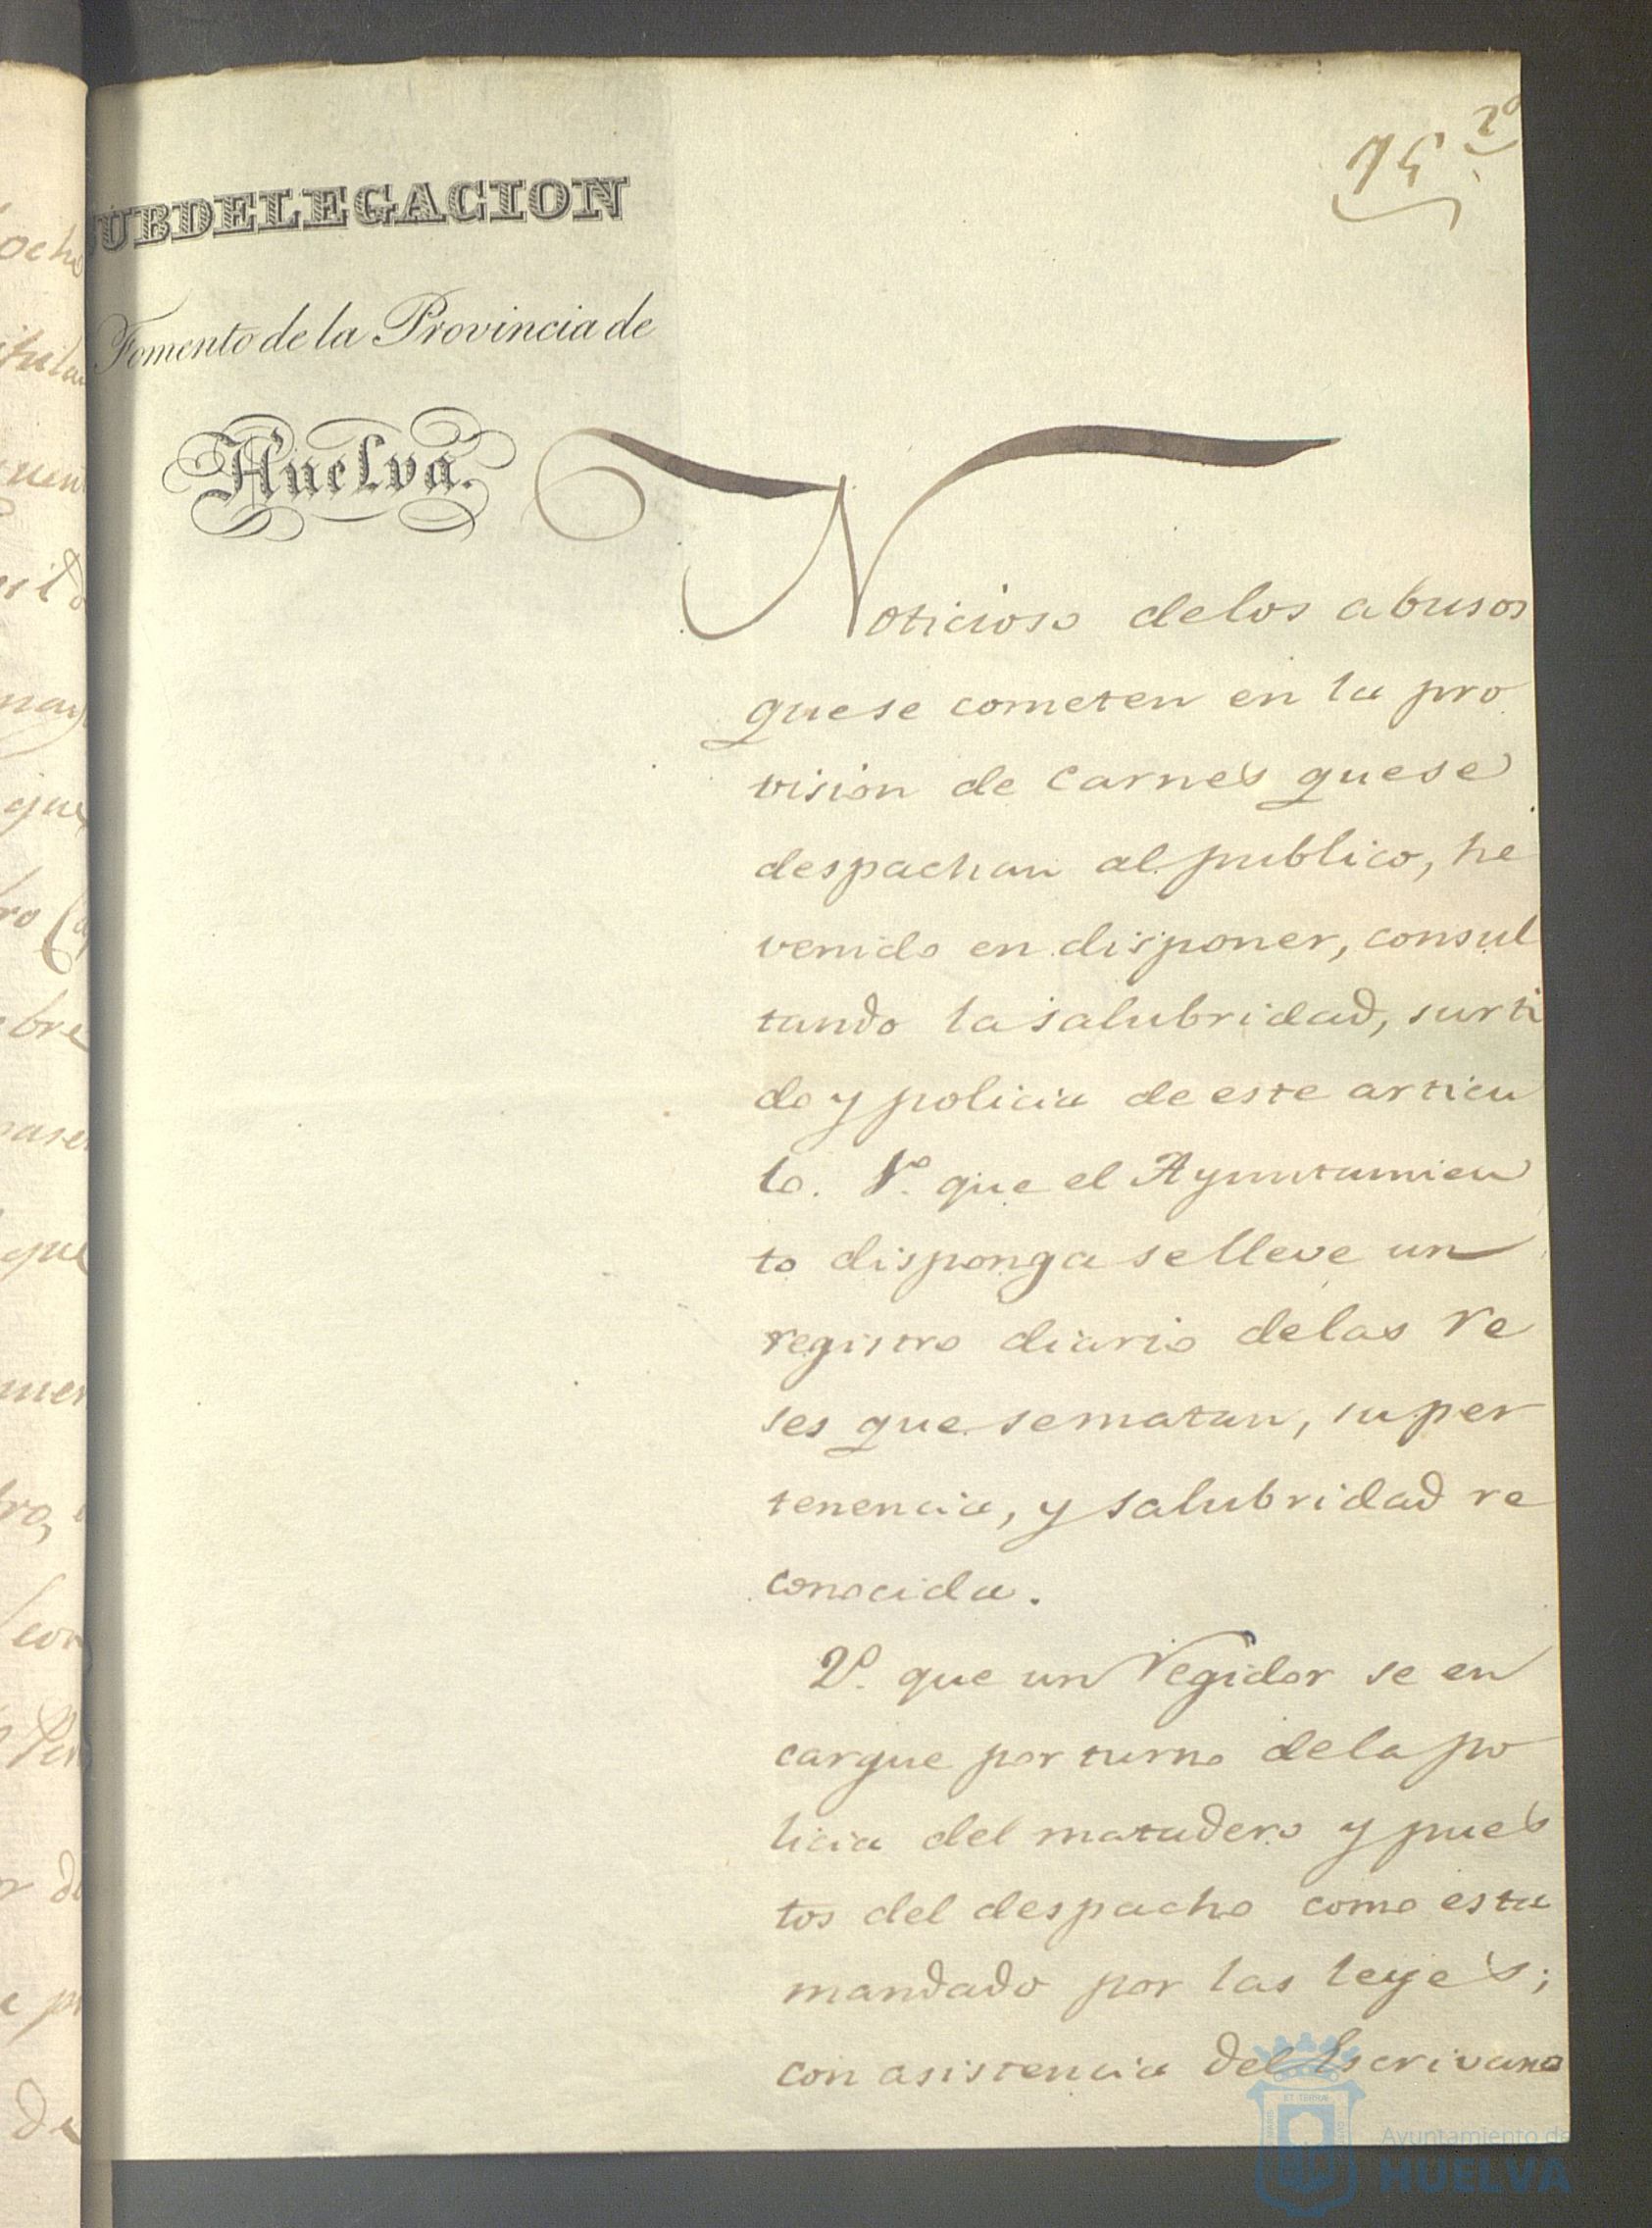 UBDELEGACION
Fomento de la Provincia de
Huelva.
Noticioso delos abusos
quese cometen en la pro
vision de Carnes quese
despachan al publico, he
venido en disponer, consul
tando la salubridad, surti
do y policia de este articu
lo. 1º. que el Ayuntamien
to disponga selleve un
registro diario delas re
ses que sematan, su per
tenencia, y salubridad re
conocida.
2º. que un Regidor se en
cargue por turno dela po
licia del matadero y pues
tos del despacho como esta
mandado por las leyes;
con asistencia del Escrivano
Ayuntamiento de
HUELVA